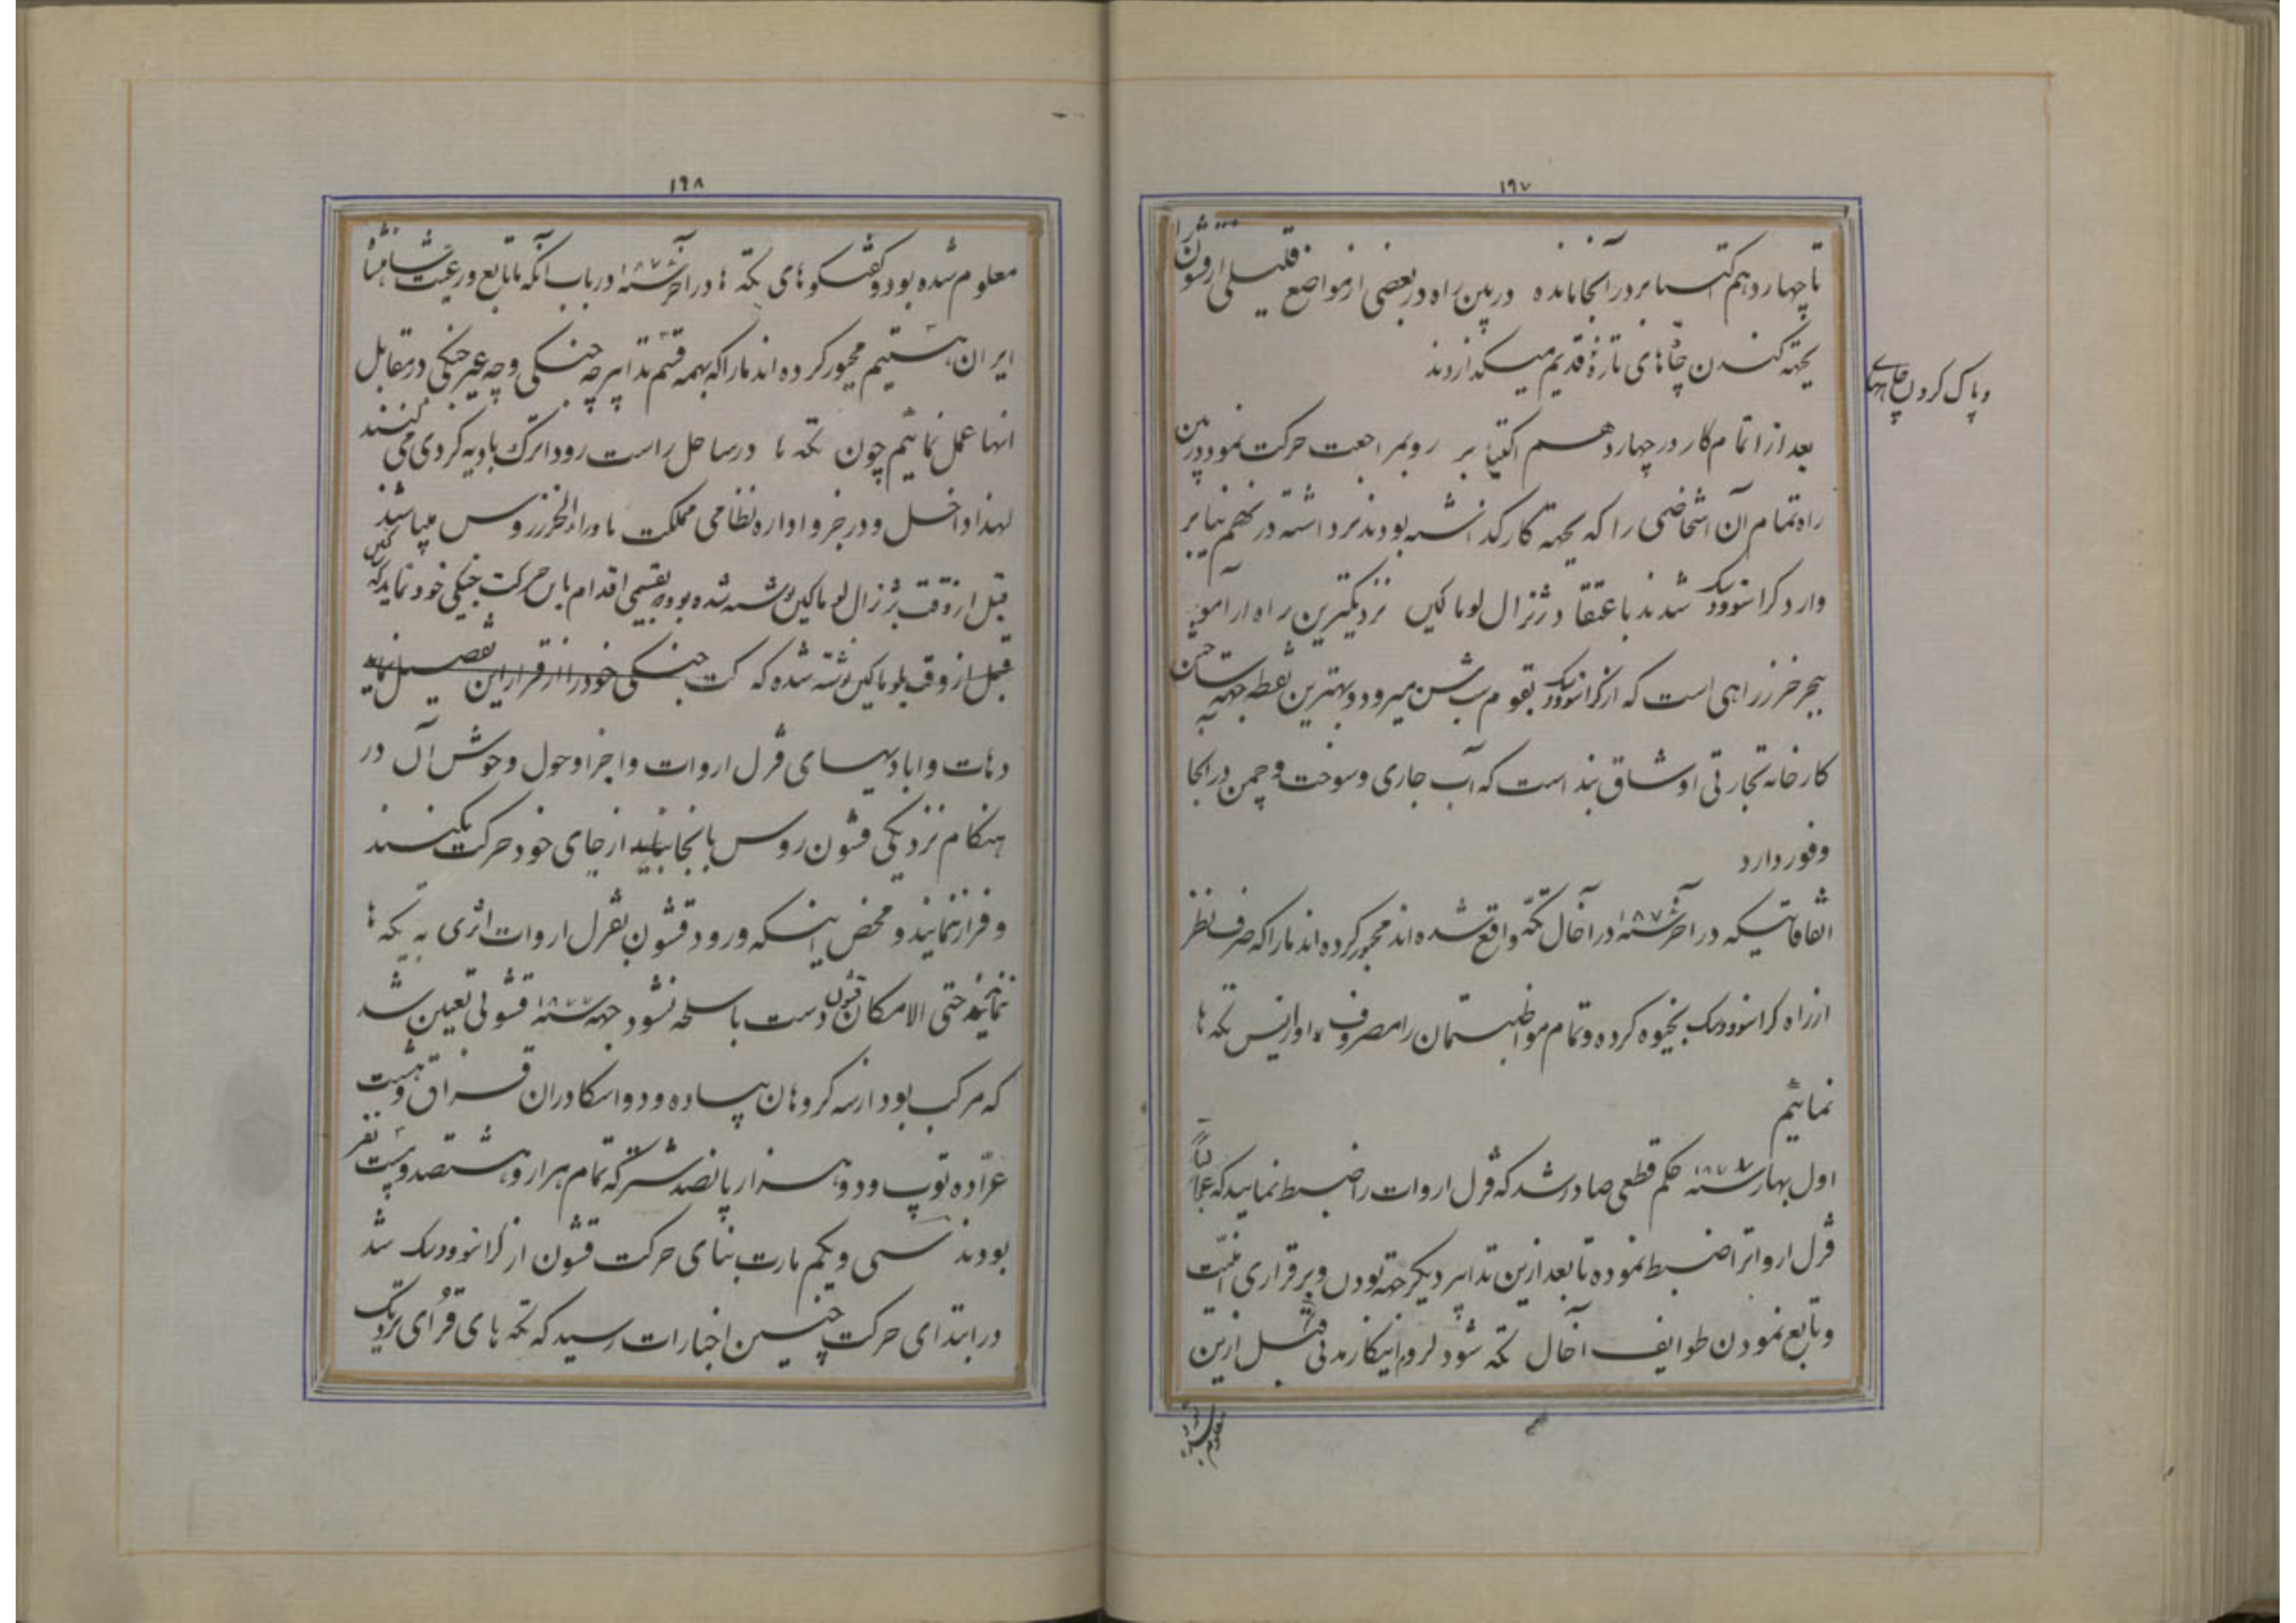 ۱۹۷
تا چهاردهم اکتیابر در آنجا مانده در بین راه در بعضی از مواضع قلیلی از قشون را
بجهة کندن چاههای تازه و قدیم میگذاردند
و پاک کردن چاههای
بعد از اتمام کار در چهاردهم اکتیابر رو بمراجعت حرکت نمود و در بین
راه تمام آن اشخاصی را که بجهة کار گذاشته بودند برداشته در نهم نیابر
وارد کراسنوودسک شدند باعتقاد ژنرال لوماکین نزدیکترین راه از آمویه
ببحر خزر راهی است که از کراسنوودسک بقوم سبشن میرود و بهترین نقطه جهة ساختن
کارخانه تجارتی اوشاق بند است که آب جاری و سوخت و چمن در آنجا
وفور دارد
اتفاقاتیکه در آخر سنه ۱۸۷۶ در آخال تکه واقع شده‌اند مجبور کرده‌اند ما را که صرف نظر
از راه کراسنوودسک بخیوه کرده و تمام مواظبتمان را مصروف تکه ها
نمائیم
اول بهار سنه ۱۸۷۷ حکم قطعی صادر شد که قزل اروات را ضبط نمایید که عجالتاً
قزل اروات را ضبط نموده تا بعد ازین تدابیر دیگر جهة بودن و برقراری امنیت
و تابع نمودن طوایف آخال تکه شود لزوم اینکار مدتی قبل ازین
معلوم شده
۱۹۸
معلوم شده بود و گفتگوهای تکه ها در آخر سنه ۱۸۷۶ در باب آنکه ما تابع و رعیت شاهنشاه
ایران هستیم مجبور کرده‌اند ما را که بهمه قسم تدابیر چه جنگی و چه غیر جنگی در مقابل
انها عمل نمائیم چون تکه ها در ساحل راست رود اترک بادیه گردی می کنند
لهذا داخل و در جزو اداره نظامی مملکت ماوراء الخزر روس میباشند
قبل از وقت بژنرال لوماکین نوشته شده بود بقسمی اقدام باین حرکت جنگی خود نماید که
قبل از وقت بلوماکین نوشته شده که حرکت جنگی خود را از قرار این تفصیل نماید
دهات و ابادیهای قزل اروات و اجزا و حول و حوش آن در
هنگام نزدیکی قشون روس بانجا نباید از جای خود حرکت بکنند
و فرار نمایند و محض اینکه ورود قشون بقزل اروات اثری به تکه ها
نماید حتی الامکان قشون دست باسلحه نشود جهة سنه ۱۸۷۷ قشونی تعیین شد
که مرکب بود از سه گروهان پیاده و دو اسکادران قزاق و هشت
عراده توپ و دو هزار پانصد شتر که تمام هزار و هشتصد و بیست نفر
بودند سی و یکم مارت بنای حرکت قشون از کراسنوودسک شد
در ابتدای حرکت چنین اخبارات رسید که تکه های قرای نزدیک